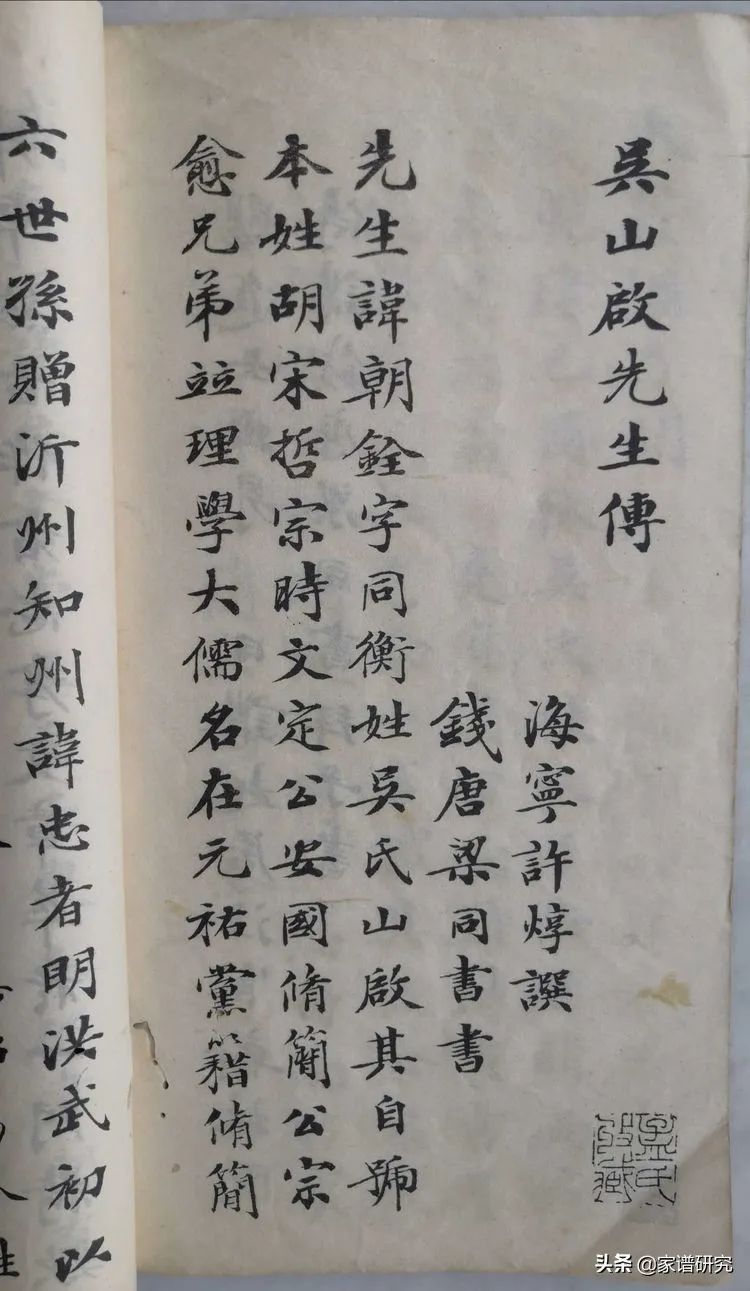 吳山啟先生傳
海寧許焞譔
錢唐梁同書書
先生諱朝銓字同衡姓吳氏山啟其自號
本姓胡宋哲宗時文定公安國脩簡公宗
愈兄弟竝理學大儒名在元祐黨籍脩簡
六世孫贈沂州知州諱忠者明洪武初以
孟氏
頭条 @家谱研究